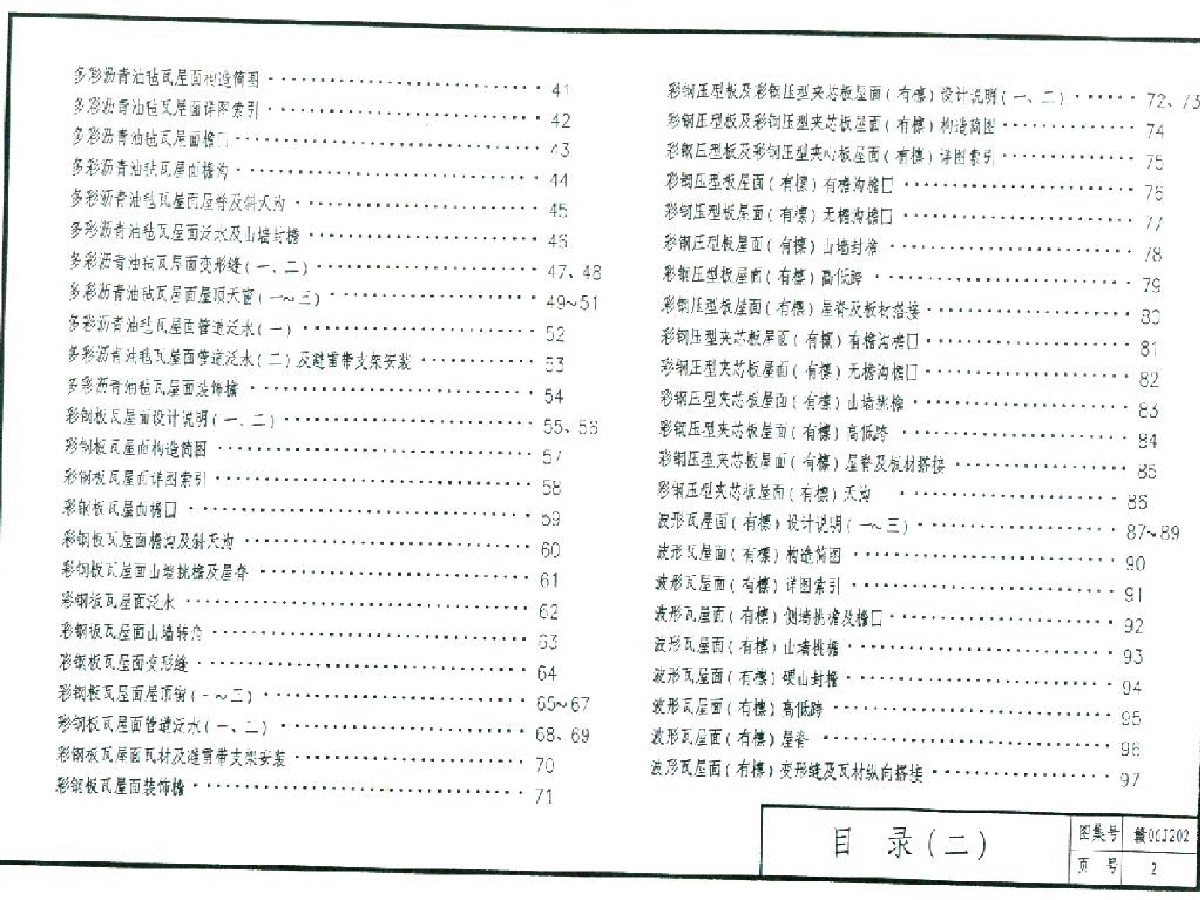 多彩沥青油毡瓦屋面构造简图 41
多彩沥青油毡瓦屋面详图索引 42
多彩沥青油毡瓦屋面檐口 43
多彩沥青油毡瓦屋面檐沟 44
多彩沥青油毡瓦屋面屋脊及斜天沟 45
多彩沥青油毡瓦屋面泛水及山墙封檐 46
多彩沥青油毡瓦屋面变形缝(一、二) 47、48
多彩沥青油毡瓦屋面屋顶天窗(一~三) 49~51
多彩沥青油毡瓦屋面管道泛水(一) 52
多彩沥青油毡瓦屋面管道泛水(二)及避雷带支架安装 53
多彩沥青油毡瓦屋面装饰檐 54
彩钢板瓦屋面设计说明(一、二) 55、56
彩钢板瓦屋面构造简图 57
彩钢板瓦屋面详图索引 58
彩钢板瓦屋面檐口 59
彩钢板瓦屋面檐沟及斜天沟 60
彩钢板瓦屋面山墙挑檐及屋脊 61
彩钢板瓦屋面泛水 62
彩钢板瓦屋面山墙转角 63
彩钢板瓦屋面变形缝 64
彩钢板瓦屋面屋顶窗(一~三) 65~67
彩钢板瓦屋面管道泛水(一、二) 68、69
彩钢板瓦屋面瓦材及避雷带支架安装 70
彩钢板瓦屋面装饰檐 71
彩钢压型板及彩钢压型夹芯板屋面(有檩)设计说明(一、二) 72、73
彩钢压型板及彩钢压型夹芯板屋面(有檩)构造简图 74
彩钢压型板及彩钢压型夹心板屋面(有檩)详图索引 75
彩钢压型板屋面(有檩)有檐沟檐口 76
彩钢压型板屋面(有檩)无檐沟檐口 77
彩钢压型板屋面(有檩)山墙封檐 78
彩钢压型板屋面(有檩)高低跨 79
彩钢压型板屋面(有檩)屋脊及板材搭接 80
彩钢压型夹芯板屋面(有檩)有檐沟檐口 81
彩钢压型夹芯板屋面(有檩)无檐沟檐口 82
彩钢压型夹芯板屋面(有檩)山墙挑檐 83
彩钢压型夹芯板屋面(有檩)高低跨 84
彩钢压型夹芯板屋面(有檩)屋脊及板材搭接 85
彩钢压型夹芯板屋面(有檩)天沟 86
波形瓦屋面(有檩)设计说明(一~三) 87~89
波形瓦屋面(有檩)构造简图 90
波形瓦屋面(有檩)详图索引 91
波形瓦屋面(有檩)侧墙挑檐及檐口 92
波形瓦屋面(有檩)山墙挑檐 93
波形瓦屋面(有檩)硬山封檐 94
波形瓦屋面(有檩)高低跨 95
波形瓦屋面(有檩)屋脊 96
波形瓦屋面(有檩)变形缝及瓦材纵向搭接 97
目 录(二)
图集号 赣00J202
页 号 2